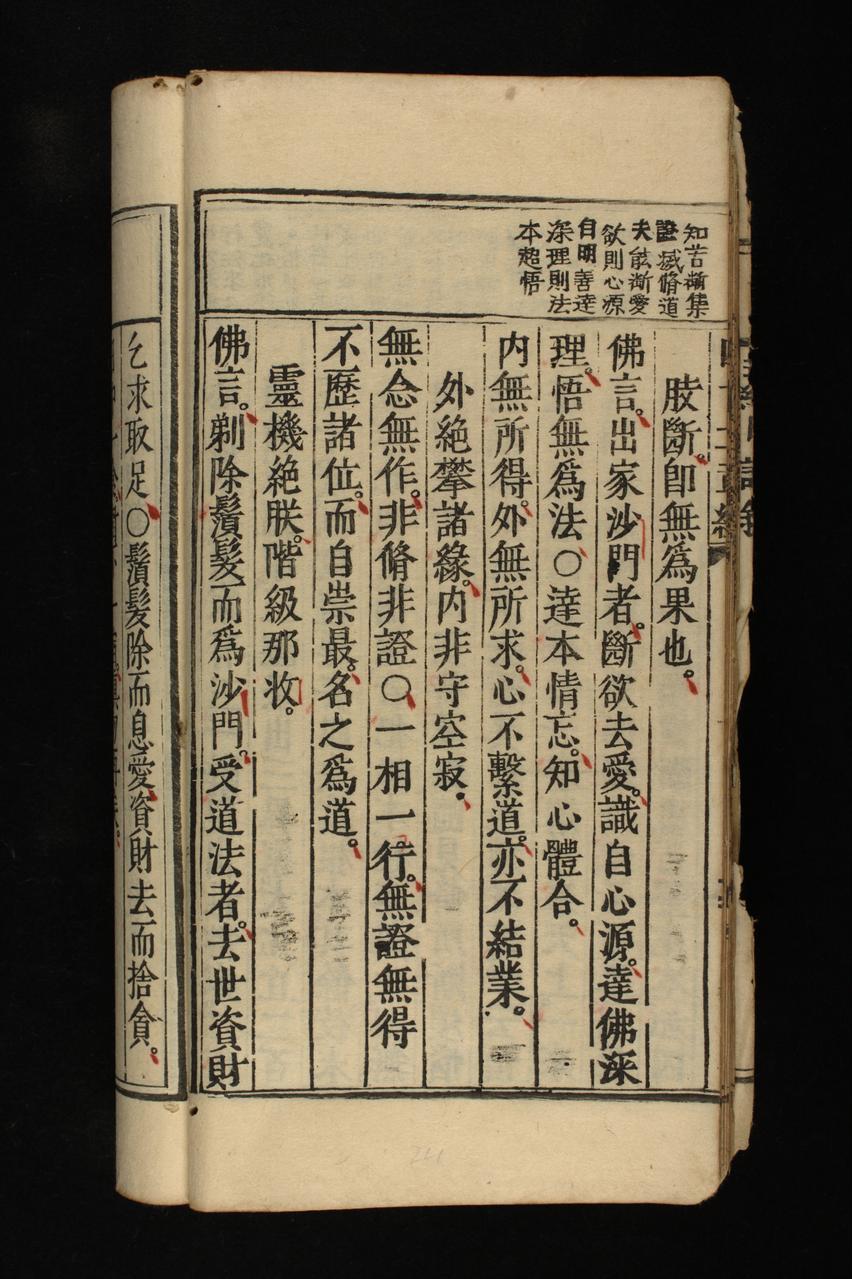 知苦斷集
證滅脩道
夫能斷愛
欲則心源
自明善達
深理則法
本超悟
肢斷。卽無爲果也。
佛言。出家沙門者。斷欲去愛。識自心源。達佛深
理。悟無爲法〇達本情忘。知心體合。
內無所得。外無所求。心不繫道。亦不結業。
外絶攀諸緣。內非守空寂。
無念無作。非脩非證〇一相一行。無證無得
不歷諸位。而自崇最。名之爲道。
靈機絶朕。階級那收。
佛言。剃除鬚髮。而爲沙門。受道法者。去世資財
乞求取足〇鬚髮除而息愛。資財去而捨貪。